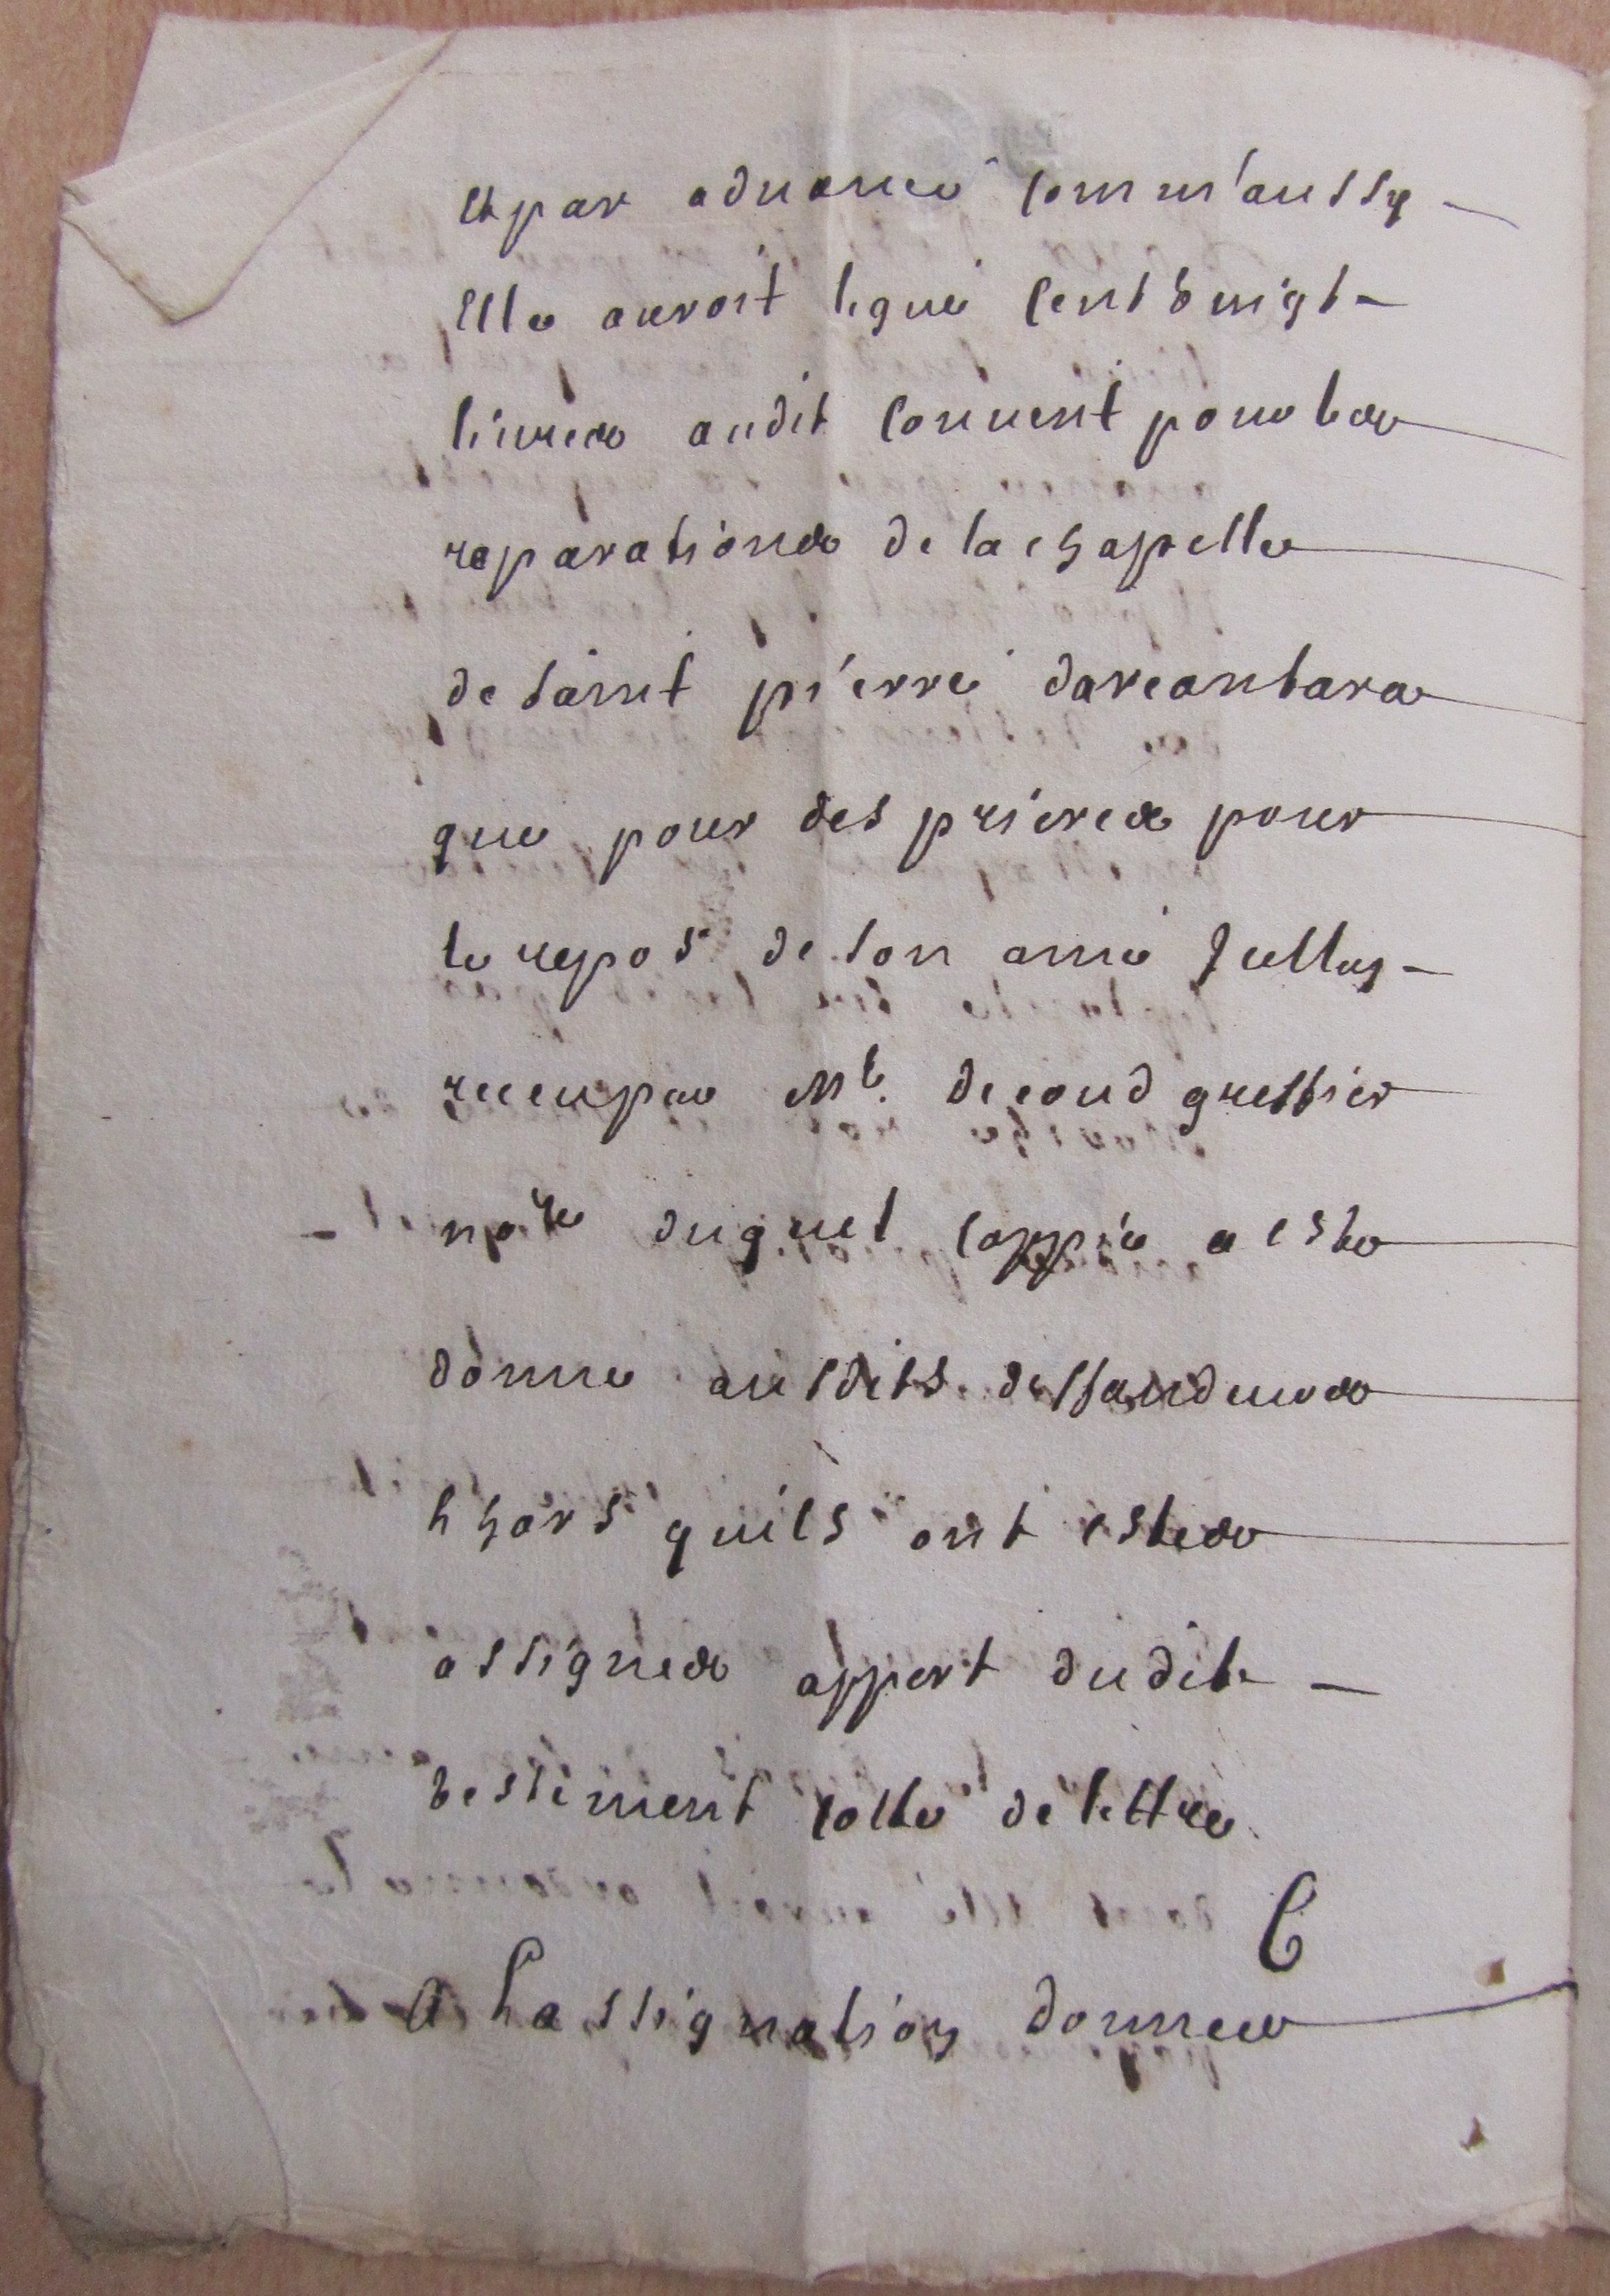 et par aduance comm'aussy
Elle auroit legué cent vingt
liures audit conuent pour les
reparationes de la chapelle
de saint pierre darcantara
que pour des prieres pour
le repos de son ame Jcelluy
receu par Me. decoud greffier
nore duquel coppie a este
donne ausdits deffandeures
lhors quils ont estes
assignes appert dudit
testement cotte de lettre
C
A Lassignation donnee